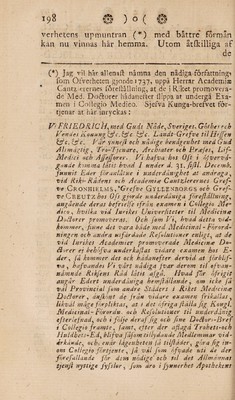 198 ❀ ) o ( ❀
verhetens upmuntran (*) med båttre förmån
kan nu vinnas här hemma. Utom åtskilliga af
de
(*) Jag vil här allenast nämna den nådiga författning,
som Öfverheten gjorde 1737, uppå Herrar Academiæ
Cantzlerernes föreställning, at de i Riket promovera-
de Med. Doctorer hädanefter slippa at undergå Exa-
men i Collegio Medico. Sjelfva Kunga-brefvet för-
tjenar at här inryckas:
VI FRIEDRICH, med Guds Nåde, Sveriges, Göthes och
Vendes Konung &c. &c. &c. Landt-Grefve till Hessen
&c. &c. Vår ynnest och nådige benägenhet med Gud
Alsmägtig, Tro-Tjenare, Archiater och Præses, Lif-
Medici och Assessorer. Vi hafva hos Oss i öfvervä-
gande komma låtit hvad I under d. 31. sist. Decemb.
hos Eder föreställt i underdånighet at andraga,
vid Rik-Rådens och Academiæ Cantzlerernes Gref-
ve CRONHIELMS, Grefve GYLLENBORGS och Gref-
ve CREUTZ hos Oss gjorde underdåniga föreställning,
angående deras befrielse ifrån examen i Collegio Me-
dico, hvilka vid Inrikes Universiteter til Medicinæ
Doctorer promoveras. Och som Vi, hvad detta vid-
kommer, finne det vara både med Medicinal-Förord-
ningen och andra utfärdade Resolutioner enligt, at de
vid Inrikes Academier promoverade Medicinæ Do-
ctorer ej behöfva underkastas vidare examen hos E-
der, så kommer det och hädanefter dervid at förblif-
va, hafvandes Vi tykt nådigt svar derom til ofvan-
nämnde Rikens Råd låtet afgå. Hvad för öfrigit
angår Edert underdåniga hemställande, om icke så
väl Provincial som andre Städers i Riket Medicinæ
Doctorer, ändskönt de från vidare examen frikallas,
likväl måge förpliktas, at i det öfriga ställa sig Kongl.
Medicinal-Förordn. och Resolutioner til underdånig
efterlefnad, och i följe deraf sig och sine Doctors-Bref
i Collegio framte, samt, efter der aflagd Trohets-och
Huldhets-Ed, blifva såsom tilbudne Medlemmar vid-
erkände, och, enär lägenheten så tilstäder, göra sig in-
om Collegio förtjente, så väl som ifvade at de der
förefallande för dem nödige och til det Allmännas
tjenst nyttige sysslor, som äro i synnerhet Apothekens